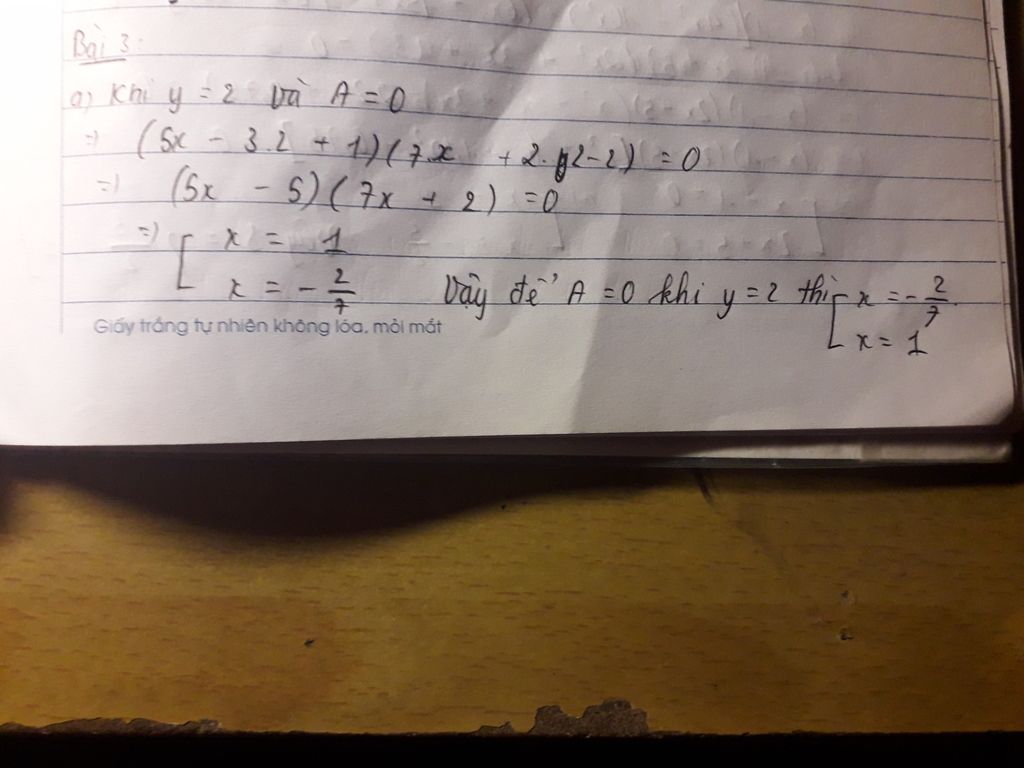 Bài 3:
a) Khi y = 2 và A = 0
=> (5x - 3.2 + 1)(7x + 2.2-2) = 0
=> (5x - 5)(7x + 2) = 0
=> [ x = 1
x = - 2/7 Vậy để A = 0 khi y = 2 thì [ x = - 2/7.
x = 1
Giấy trắng tự nhiên không lóa, mỏi mắt